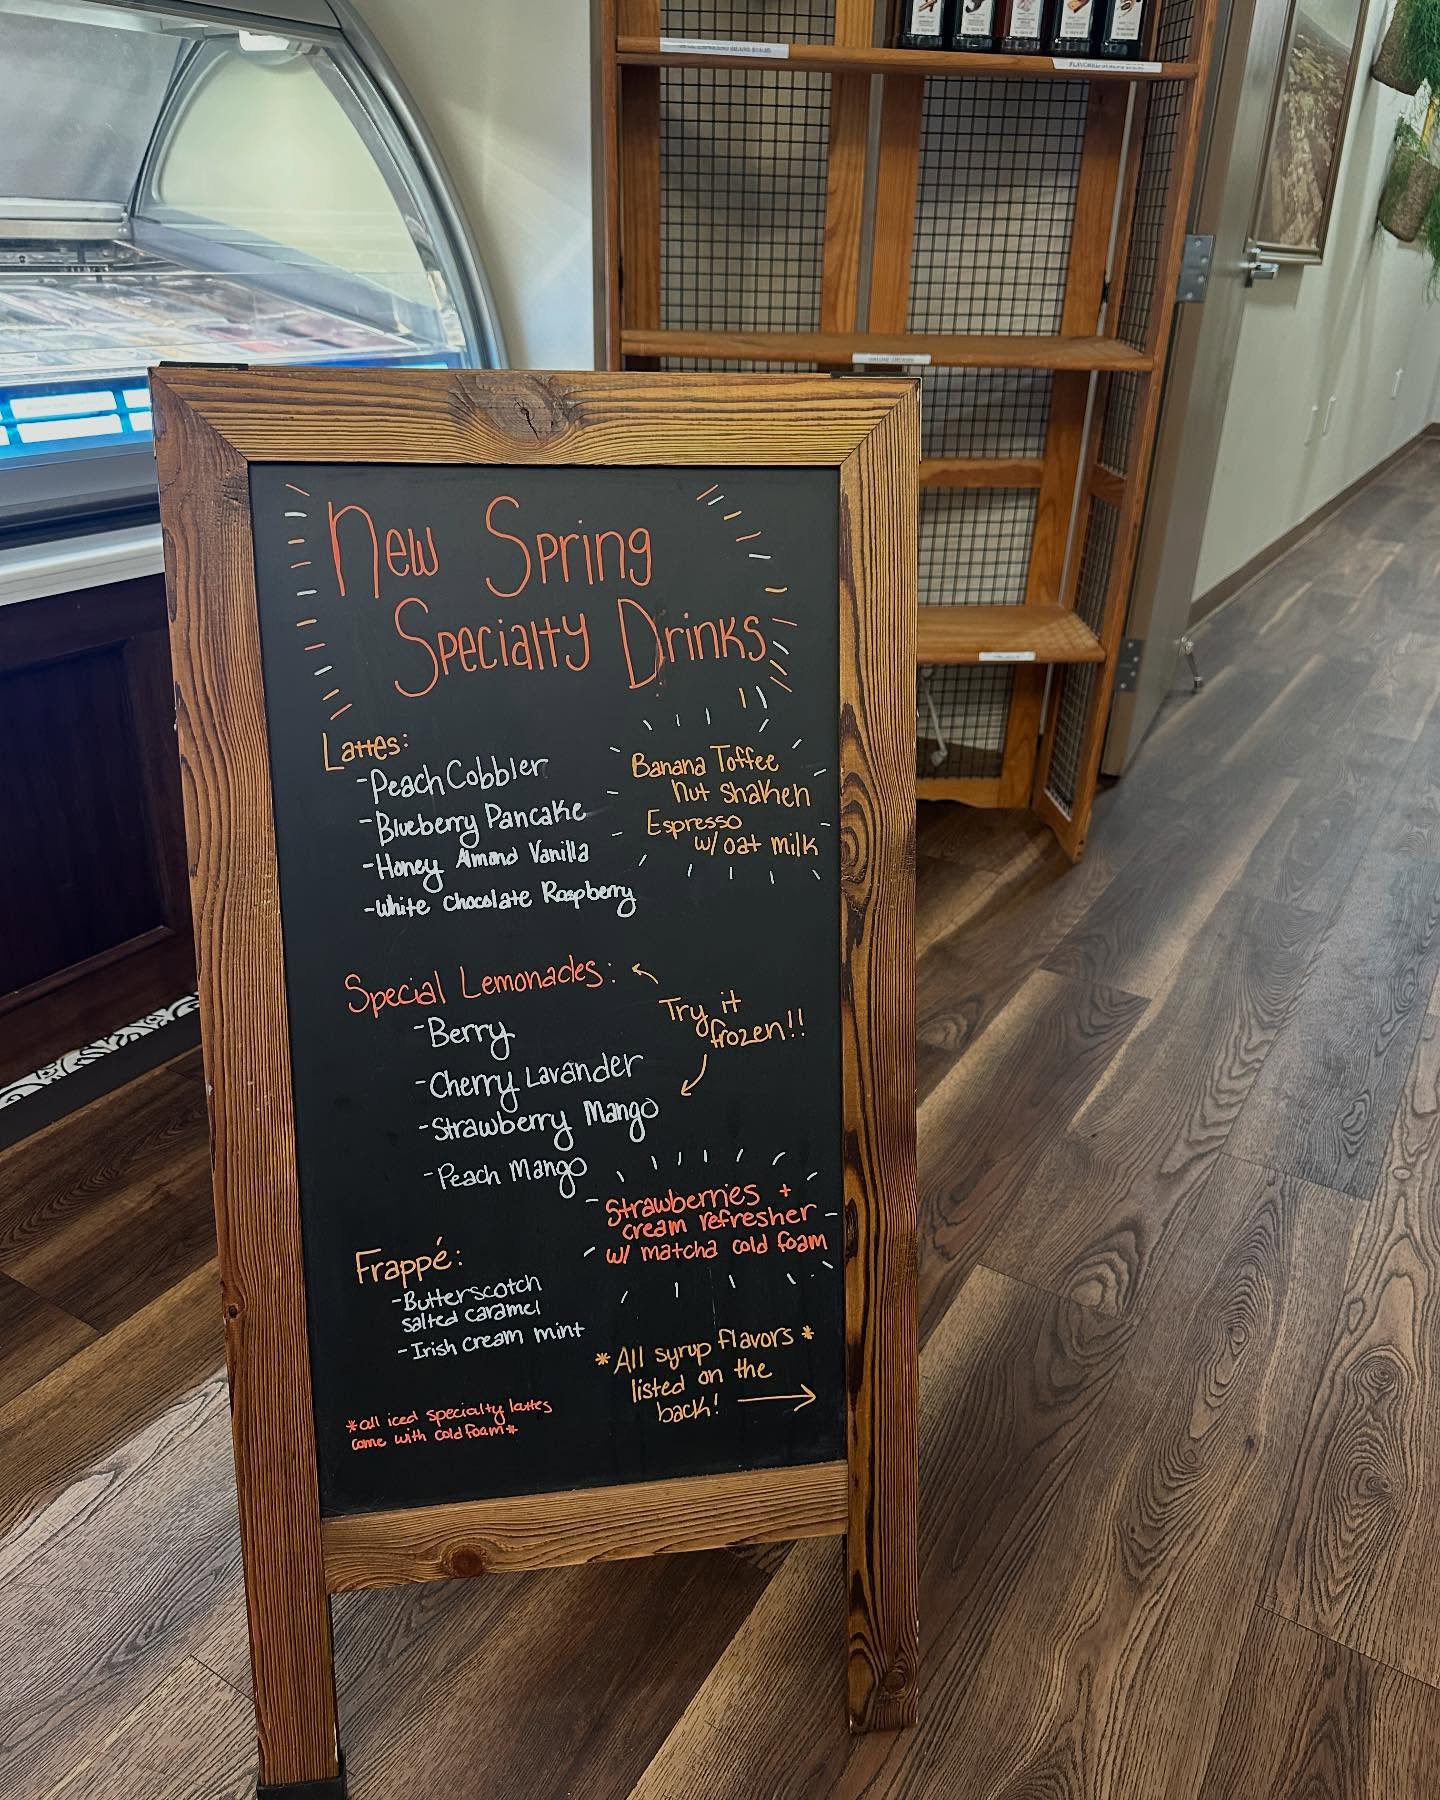 New Spring
Specialty Drinks
Lattes:
-Peach Cobbler
-Blueberry Pancake
-Honey Almond Vanilla
-White Chocolate Raspberry
Banana Toffee
nut shaken
Espresso
w/ oat milk
Special Lemonades:
-Berry
-Cherry Lavander
-Strawberry Mango
-Peach Mango
Try it
frozen!!
Strawberries +
cream refresher
w/ matcha cold foam
Frappé:
-Butterscotch
salted caramel
-Irish cream mint
*All syrup flavors*
listed on the
back!
*all iced specialty lattes
come with cold foam*